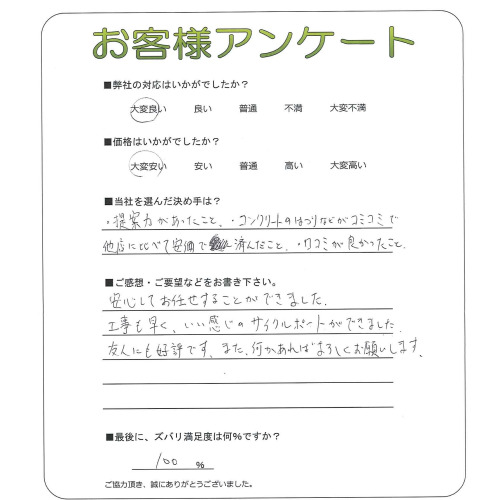 お客様アンケート
■弊社の対応はいかがでしたか？
大変良い 良い 普通 不満 大変不満
■価格はいかがでしたか？
大変安い 安い 普通 高い 大変高い
■当社を選んだ決め手は？
・提案力があったこと、・コンクリートのはつりなどがコミコミで
他店に比べて安価で済んだこと、・口コミが良かったこと、
■ご感想・ご要望などをお書き下さい。
安心してお任せすることができました。
工事も早く、いい感じのサイクルポートができました。
友人にも好評です。また、何かあればよろしくお願いします。
■最後に、ズバリ満足度は何％ですか？
100 ％
ご協力頂き、誠にありがとうございました。